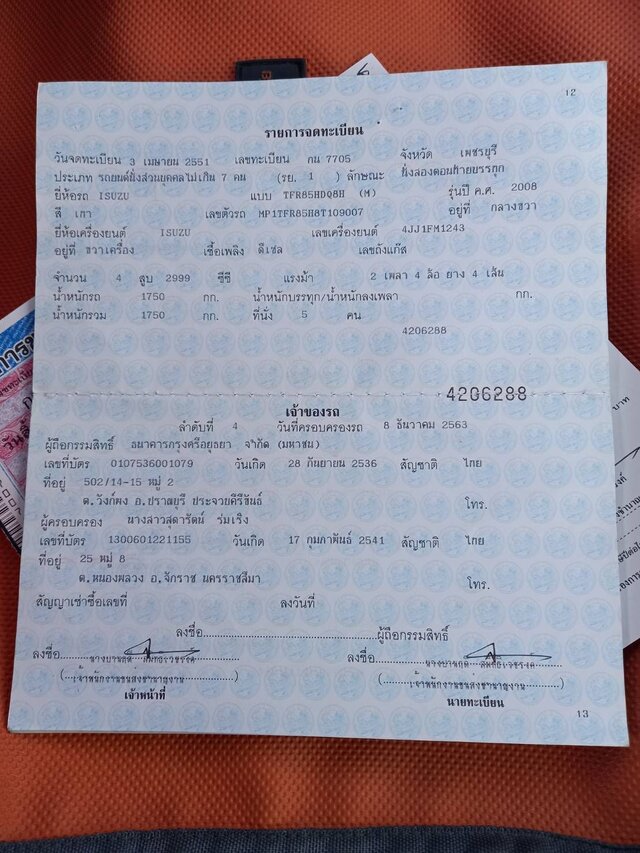 12
รายการจดทะเบียน
วันจดทะเบียน 3 เมษายน 2551 เลขทะเบียน กน 7705 จังหวัด เพชรบุรี
ประเภท รถยนต์นั่งส่วนบุคคลไม่เกิน 7 คน (รย. 1 ) ลักษณะ นั่งสองตอนท้ายบรรทุก
ยี่ห้อรถ ISUZU แบบ TFR85HDQ8H (M) รุ่นปี ค.ศ. 2008
สี เทา เลขตัวรถ MP1TFR85H8T109007 อยู่ที่ กลางขวา
ยี่ห้อเครื่องยนต์ ISUZU เลขเครื่องยนต์ 4JJ1FM1243
อยู่ที่ ขวาเครื่อง เชื้อเพลิง ดีเซล เลขถังแก๊ส
จำนวน 4 สูบ 2999 ซีซี แรงม้า 2 เพลา 4 ล้อ ยาง 4 เส้น
น้ำหนักรถ 1750 กก. น้ำหนักบรรทุก/น้ำหนักลงเพลา กก.
น้ำหนักรวม 1750 กก. ที่นั่ง 5 คน
4206288
4206288
เจ้าของรถ
ลำดับที่ 4 วันที่ครอบครองรถ 8 ธันวาคม 2563
ผู้ถือกรรมสิทธิ์ ธนาคารกรุงศรีอยุธยา จำกัด (มหาชน)
เลขที่บัตร 0107536001079 วันเกิด 28 กันยายน 2536 สัญชาติ ไทย
ที่อยู่ 502/14-15 หมู่ 2
ต.วังก์พง อ.ปราณบุรี ประจวบคีรีขันธ์ โทร.
ผู้ครอบครอง นางสาวสุดารัตน์ ร่มเริง
เลขที่บัตร 1300601221155 วันเกิด 17 กุมภาพันธ์ 2541 สัญชาติ ไทย
ที่อยู่ 25 หมู่ 8
ต.หนองพลวง อ.จักราช นครราชสีมา โทร.
สัญญาเช่าซื้อเลขที่ ลงวันที่
ลงชื่อ ผู้ถือกรรมสิทธิ์
ลงชื่อ ลงชื่อ
(เจ้าพนักงานขนส่งชำนาญงาน) (เจ้าพนักงานขนส่งชำนาญงาน)
เจ้าหน้าที่ นายทะเบียน
13
บาท